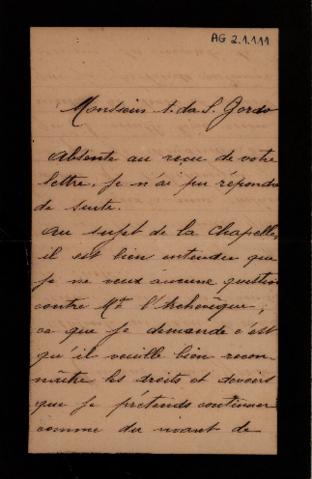 AG 2.1.111
Monsieur A. da S. Gordo
Absente au reçu de votre
lettre, je n'ai pu répondre
de suite.
Au sujet de la Chapelle,
il est bien entendu que
je ne veux aucune question
contre Mgr l'Archevêque;
ce que je demande c'est
qu'il veuille bien recon-
naître les droits et devoirs
que je prétends continuer
comme du vivant de